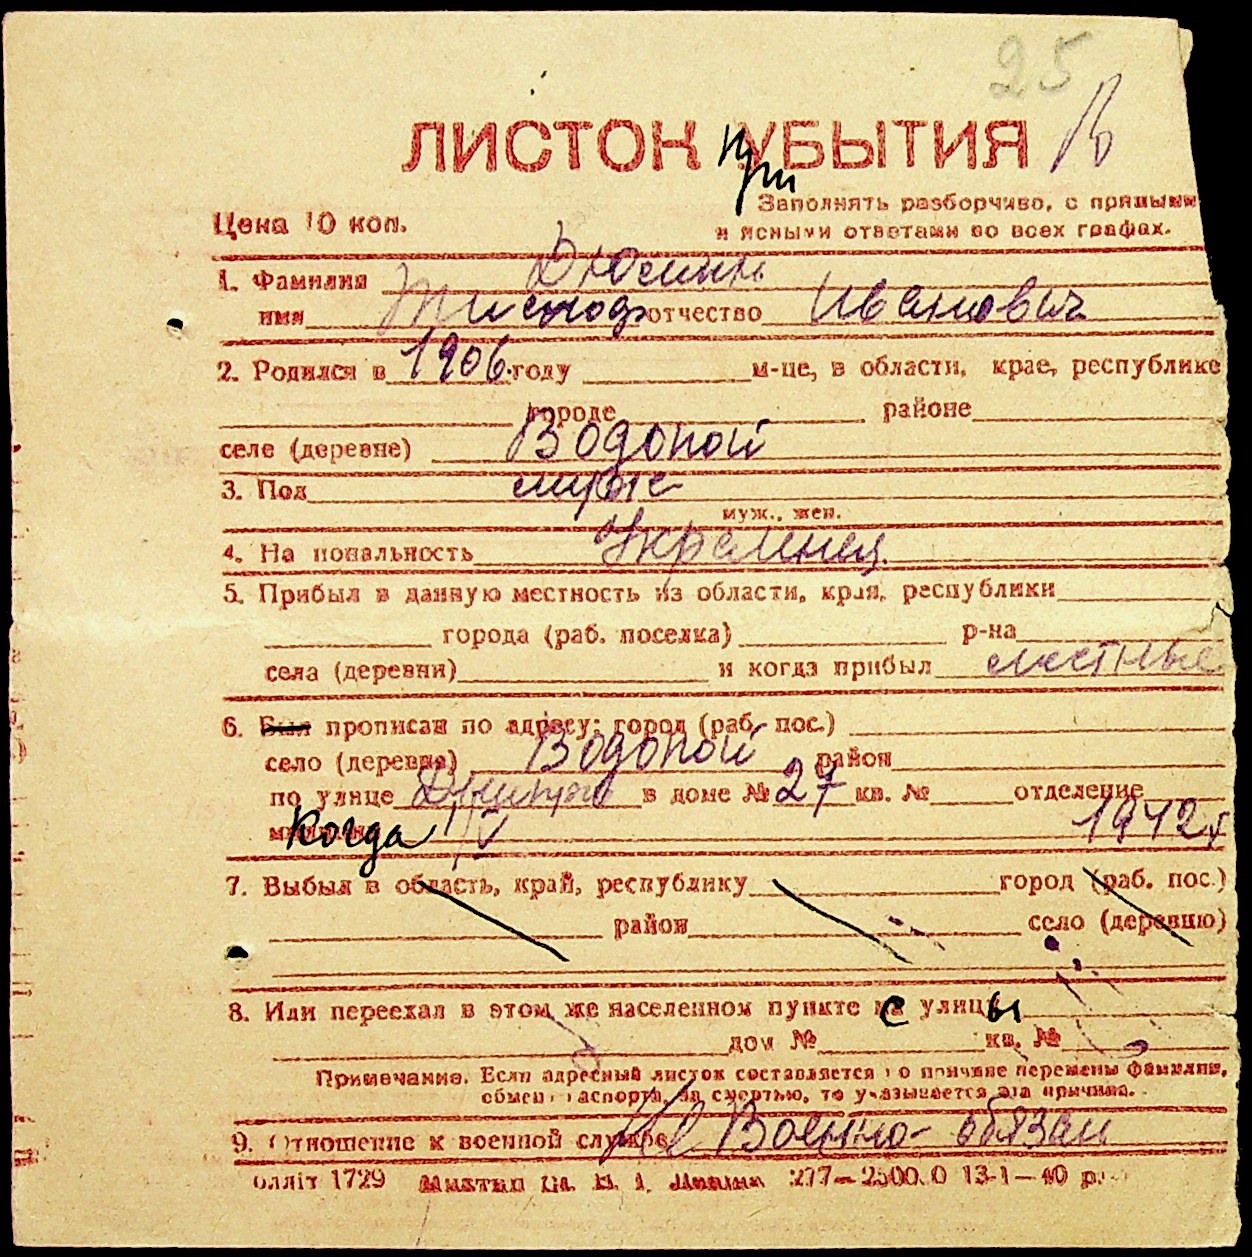 25
ЛИСТОК УБЫТИЯ
при
Заполнять разборчиво, с прямыми
Цена 10 коп.
и ясными ответами во всех графах.
1. Фамилия Дюмин
имя отчество Иванович
2. Родился в 1906. году м-це, в области, крае, республике
городе районе
селе (деревне) Водопой
3. Пол муж
муж., жен.
4. На иональность Украинец.
5. Прибыл в данную местность из области, края, республики
города (раб. поселка) р-на
села (деревни) и когда прибыл местные
6. Был прописан по адресу: город (раб. пос.)
село (деревня) Водопой район
по улице в доме № 27 кв. № отделение
Когда 1942г
7. Выбыл в область, край, республику город (раб. пос.)
район село (деревню)
8. Или переехал в этом же населенном пункте с улицы
дом № кв. №
Примечание. Если адресный листок составляется по причине перемены фамилии,
обмен паспорта, за смертью, то указывается эта причина.
9. Отношение к военной службе Не Военно-обязан
олліт 1729 277—2500.0 13-1—40 р.